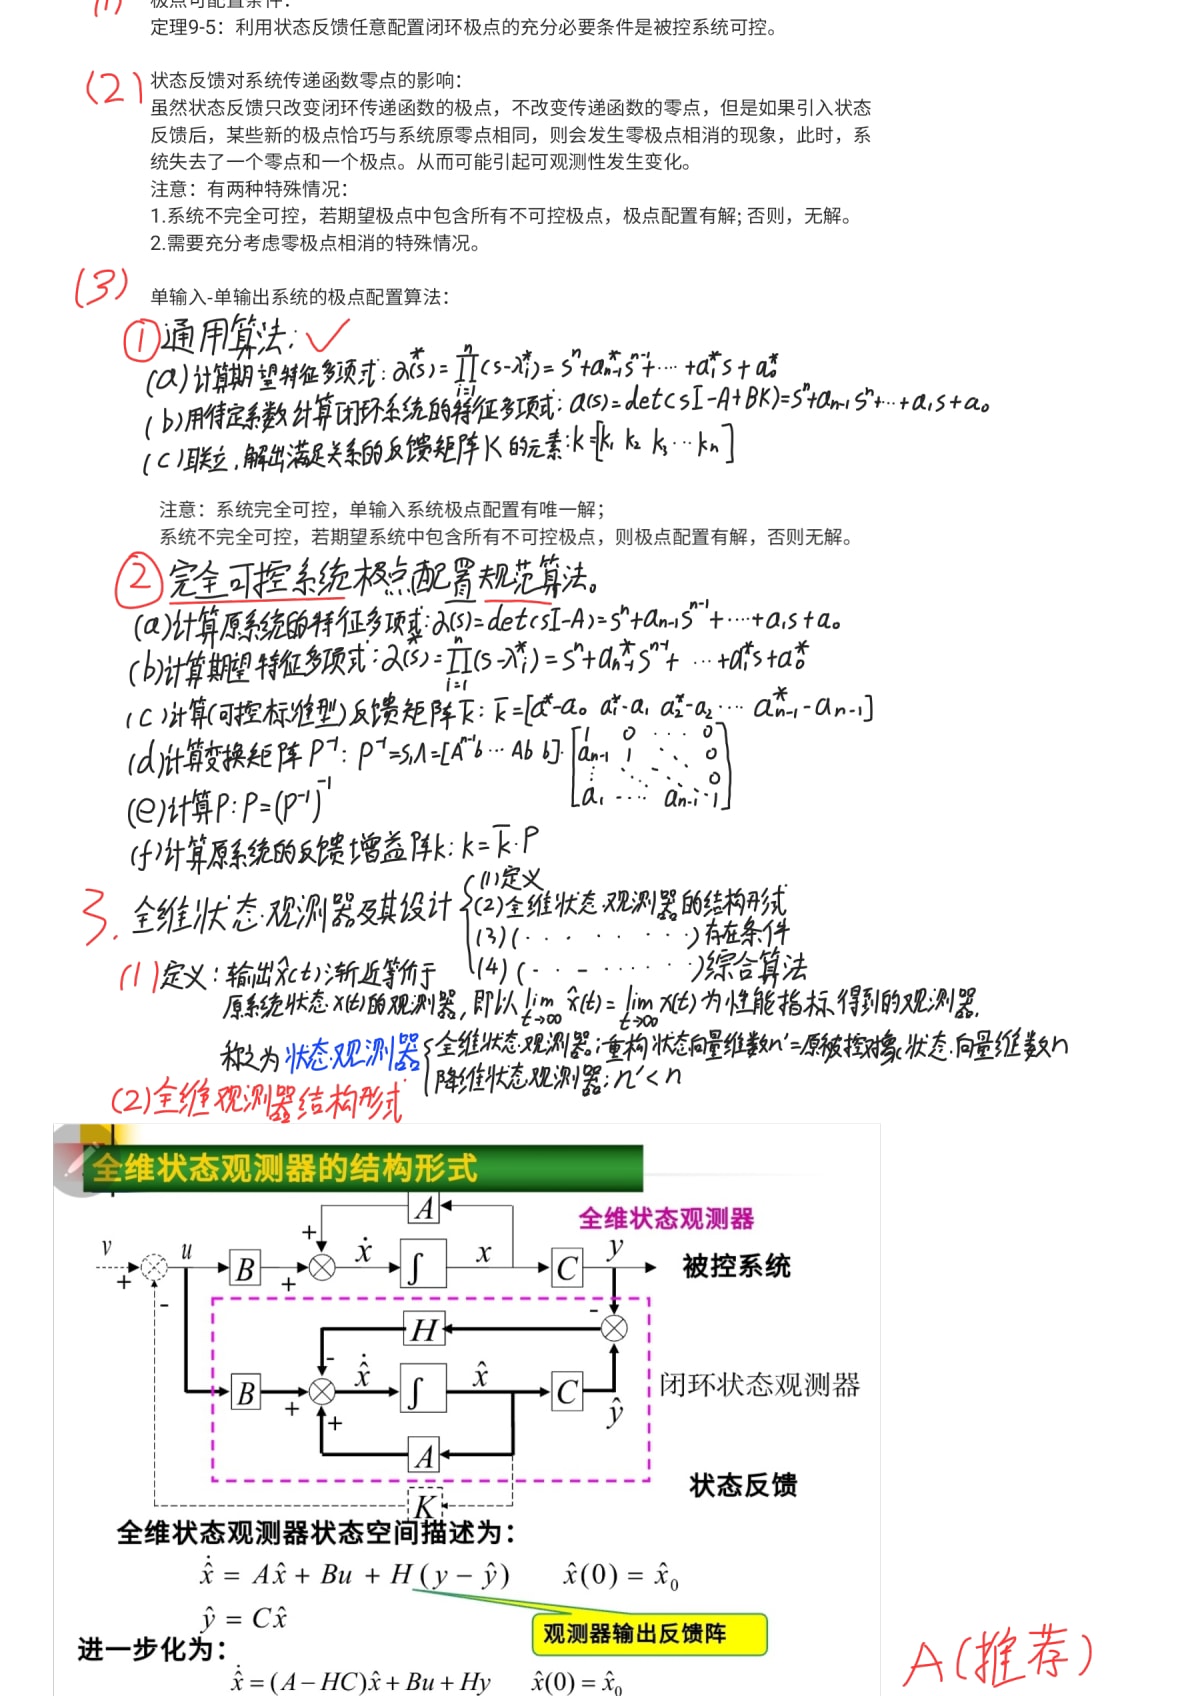 (1) 极点可配置条件：
定理9-5：利用状态反馈任意配置闭环极点的充分必要条件是被控系统可控。
(2) 状态反馈对系统传递函数零点的影响：
虽然状态反馈只改变闭环传递函数的极点，不改变传递函数的零点，但是如果引入状态
反馈后，某些新的极点恰巧与系统原零点相同，则会发生零极点相消的现象，此时，系
统失去了一个零点和一个极点。从而可能引起可观测性发生变化。
注意：有两种特殊情况：
1.系统不完全可控，若期望极点中包含所有不可控极点，极点配置有解; 否则，无解。
2.需要充分考虑零极点相消的特殊情况。
(3) 单输入-单输出系统的极点配置算法：
① 通用算法: ✓
(a)计算期望特征多项式: α*(s)=∏ⁿᵢ₌₁(s-λᵢ*)=sⁿ+a*ₙ₋₁sⁿ⁻¹+⋯+a₁*s+a₀*
(b)用待定系数计算闭环系统的特征多项式: α(s)=det(sI-A+BK)=sⁿ+aₙ₋₁sⁿ+⋯+a₁s+a₀
(c)联立,解出满足关系的反馈矩阵K的元素: k=[k₁ k₂ k₃⋯kₙ]
注意：系统完全可控，单输入系统极点配置有唯一解；
系统不完全可控，若期望系统中包含所有不可控极点，则极点配置有解，否则无解。
② 完全可控系统极点配置规范算法。
(a)计算原系统的特征多项式: α(s)=det(sI-A)=sⁿ+aₙ₋₁sⁿ⁻¹+⋯+a₁s+a₀
(b)计算期望特征多项式: α*(s)=∏ⁿᵢ₌₁(s-λᵢ*)=sⁿ+a*ₙ₋₁sⁿ⁻¹+⋯+a₁*s+a₀*
(c)计算(可控标准型)反馈矩阵k̄: k̄=[a*-a₀ a₁*-a₁ a₂*-a₂⋯a*ₙ₋₁-aₙ₋₁]
(d)计算变换矩阵P⁻¹: P⁻¹=S₁Λ=[Aⁿ⁻¹b⋯Ab b]·[1 0 ⋯ 0; aₙ₋₁ 1 ⋱ 0; ⋮ ⋱ ⋱ 0; a₁ ⋯ aₙ₋₁ 1]
(e)计算P: P=(P⁻¹)⁻¹
(f)计算原系统的反馈增益阵k: k=k̄·P
3. 全维状态观测器及其设计
(1)定义
(2)全维状态观测器的结构形式
(3)(⋯⋯)存在条件
(4)(⋯⋯)综合算法
(1)定义: 输出x̂(t)渐近等价于
原系统状态x(t)的观测器, 即以 lim t→∞ x̂(t)=lim t→∞ x(t)为性能指标得到的观测器.
称之为状态观测器
全维状态观测器:重构状态向量维数n'=原被控对象状态向量维数n
降维状态观测器: n'<n
(2)全维观测器结构形式
全维状态观测器的结构形式
A
全维状态观测器
v + - u B + + ẋ ∫ x C y 被控系统
-
H
B + - + x̂̇ ∫ x̂ C ŷ 闭环状态观测器
A
状态反馈
K
全维状态观测器状态空间描述为：
x̂̇ = Ax̂ + Bu + H(y − ŷ) x̂(0) = x̂₀
ŷ = Cx̂
观测器输出反馈阵
进一步化为：
x̂̇ = (A − HC)x̂ + Bu + Hy x̂(0) = x̂₀
A(推荐)